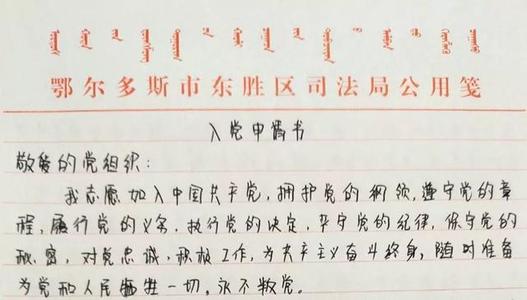 鄂尔多斯市东胜区司法局公用笺
入党申请书
敬爱的党组织：
我志愿加入中国共产党，拥护党的纲领，遵守党的章
程，履行党的义务，执行党的决定，严守党的纪律，保守党的
秘密，对党忠诚，积极工作，为共产主义奋斗终身，随时准备
为党和人民牺牲一切，永不叛党。